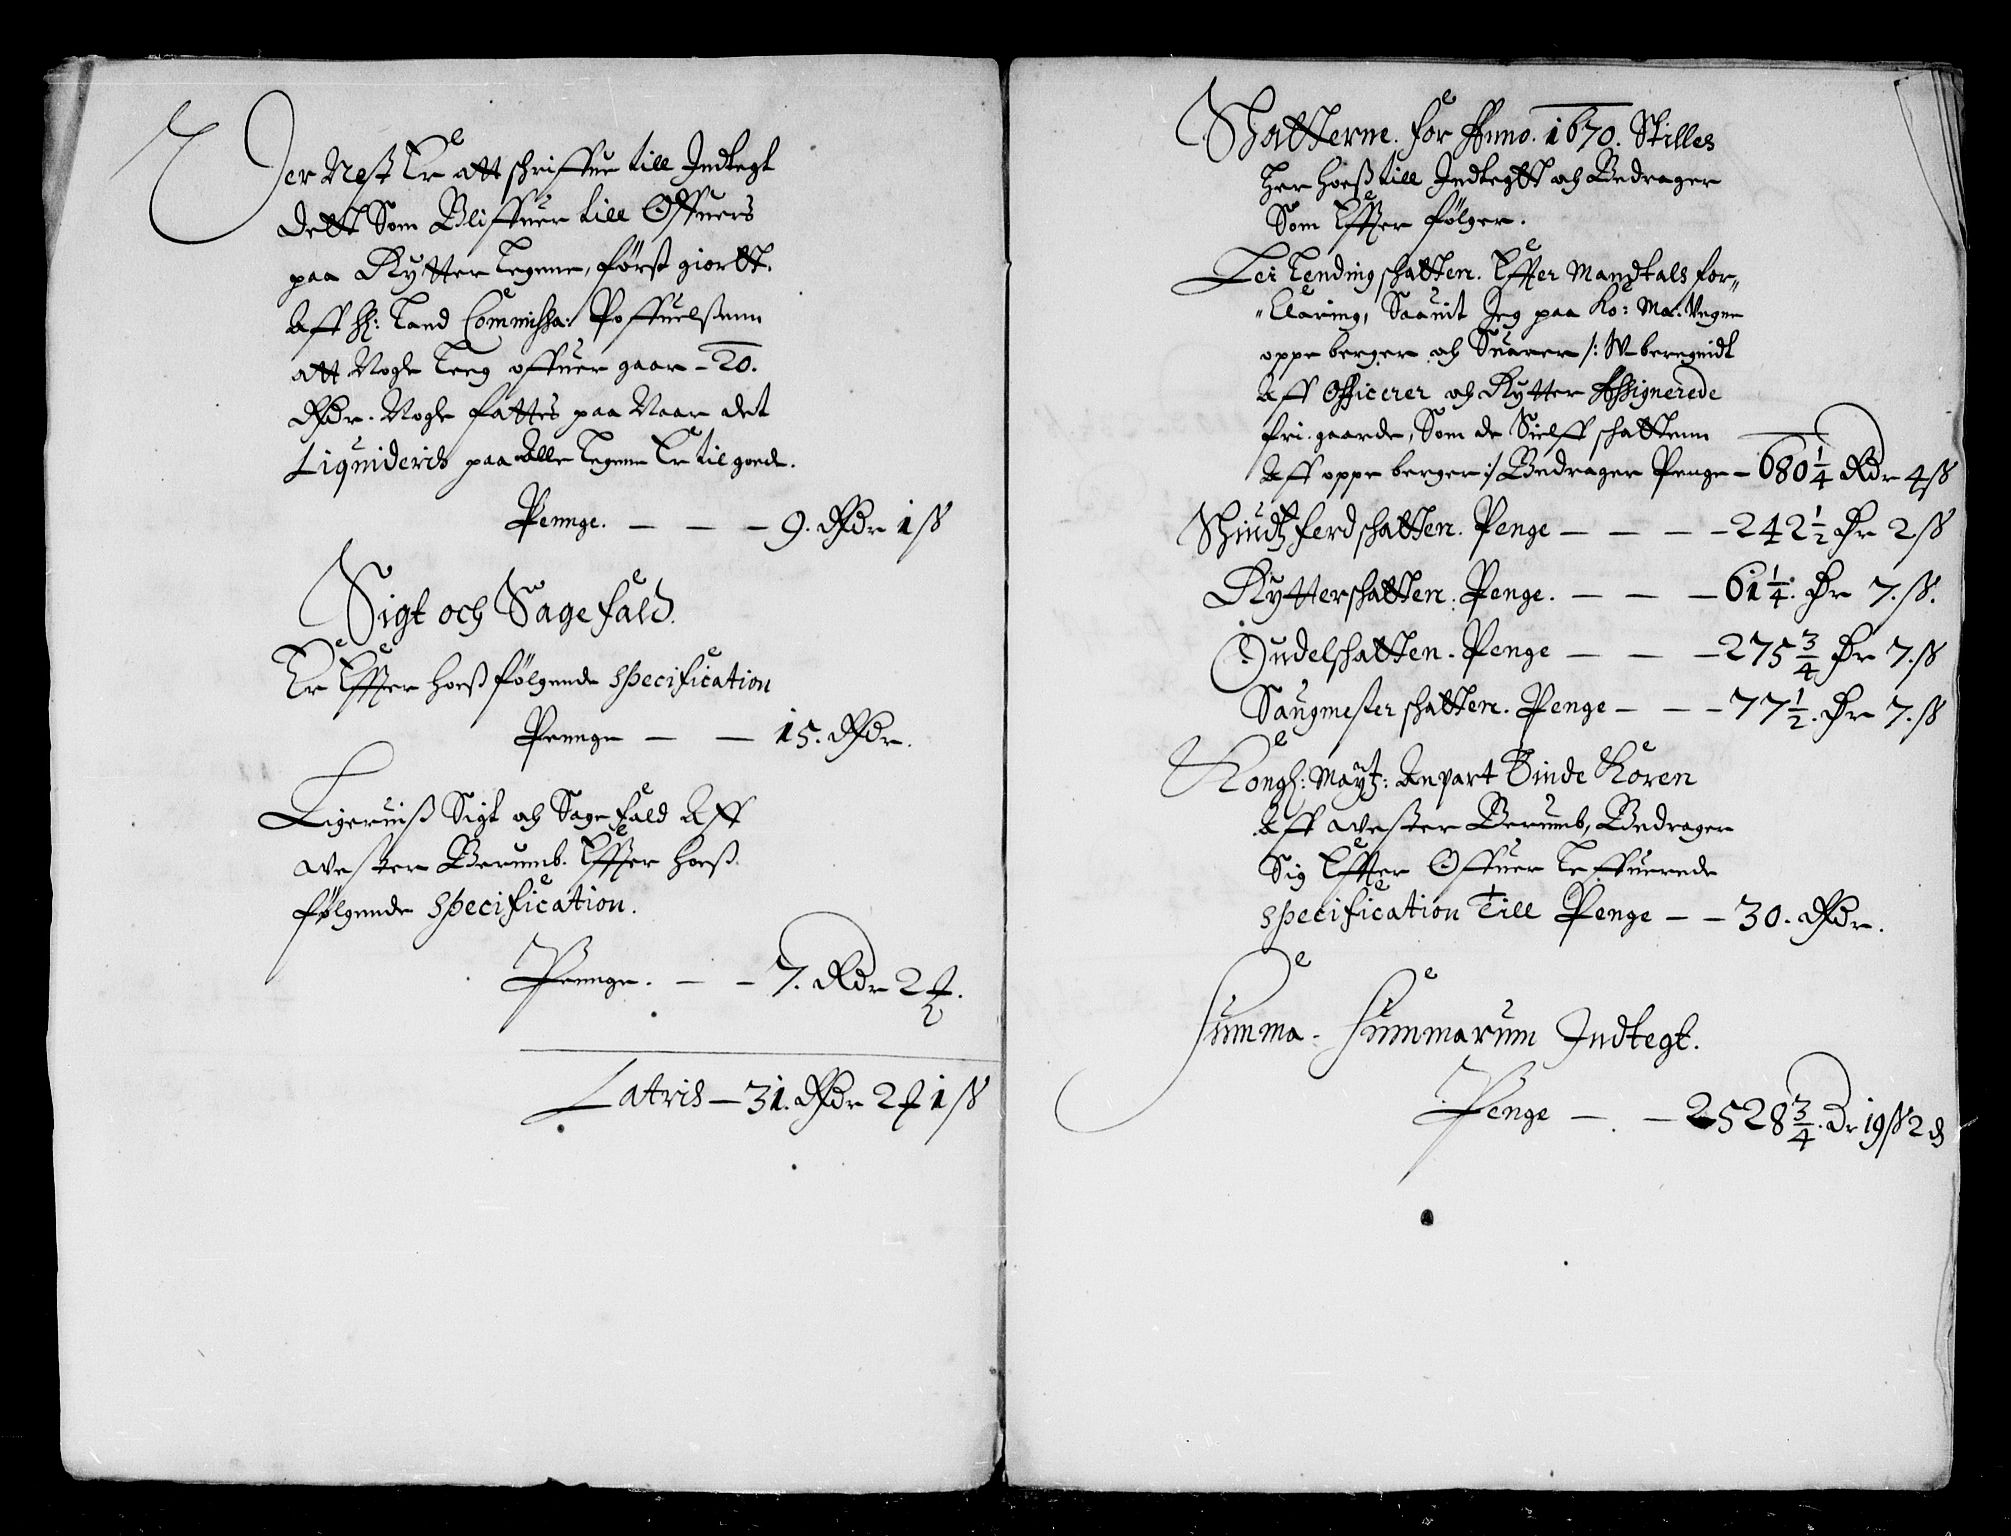 Der Nest Er att schriffue till Indtegt
dett Som Bliffuer till Offuers
paa Rytter Legene, først giortt.
Aff H: Land Commissa: Poffuelsenn
att Nogle Leeg offuer gaar - 20.
Rdr. Nogle fattes paa Naar det
Liqvideris paa Alle Legene Er til goede.
Pennge. — — — 9. Rdr 1 ß
Sigt och Sagefald.
Er Effter hoess følgende specification
Pennge — — 15. Rdr.
Ligeruiss Sigt och Sagefald Aff
Vester Berumb. Effter hoess
følgende specification.
Pennge. — — 7. Rdr 2
Lateris — 31. Rdr 2 1 ß
Schatterne. for Anno. 1670. Stilles
her hoess till Indtegtt och Bedrager
Som Effter følger.
Lei Lending schatten. Effter Mandtals for-
klaring, Saauit Jeg paa Ko: Ma: Vegne
oppe berger och Suarer /: V-beregnidt
Aff Officerer och Rytter Assignerede
fri. gaarde, Som de Sielff schattenn
Aff oppe berger :/ Bedrager Penge — 680 1/4 Rdr 4 ß
Schiudtzferdschatten. Penge — — — 242 1/2 Dr 2 ß
Rytterschatten. Penge. — — — 61 1/4. Dr 7. ß.
Oudelschatten. Penge — — — 275 3/4 Dr 7. ß
Saugmester schatten. Penge — — — 77 1/2. Dr 7. ß
Kongl: Maytz: Anpart Tinde Koren
Aff Vester Berumb, Bedrager
Sig Effter Offuer Leffuerede
specification Till Penge — — 30. Rdr.
Summa. Summarum Indtegt.
Penge — — 2528 3/4. Dr 19 ß 2 d